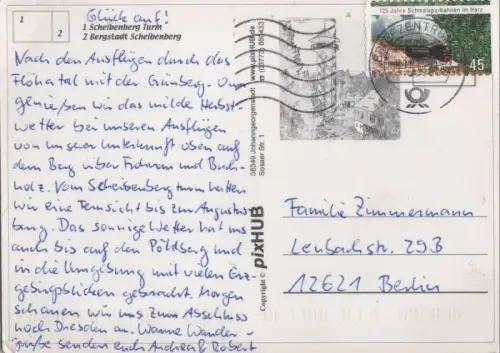 1
2
Glück auf!
1 Scheibenberg Turm
2 Bergstadt Scheibenberg
Nach den Ausflügen durch das
Flöhatal mit der Grünberg.
genießen wir das milde Herbst-
wetter bei unseren Ausflügen
von unserer Unterkunft oben auf
dem Berg über Frohnau und Buch-
holz. Vom Scheibenbergturm hatten
wir eine Fernsicht bis zur Augustus-
burg. Das sonnige Wetter hat uns
auch bis auf den Pöhlberg und
in die Umgebung mit vielen Erz-
gebirgsblicken gebracht. Morgen
schauen wir uns zum Abschluss
noch Dresden an. Warme Wander-
grüße senden euch Andrea & Robert
Copyright © pixHUB
08349 Johanngeorgenstadt
Sosaer Str. 1
www.pixHUB.de
125 Jahre Schmalspurbahnen im Harz
45
BRIEFZENTRUM
Familie Zimmermann
Lenbachstr. 29B
12621 Berlin